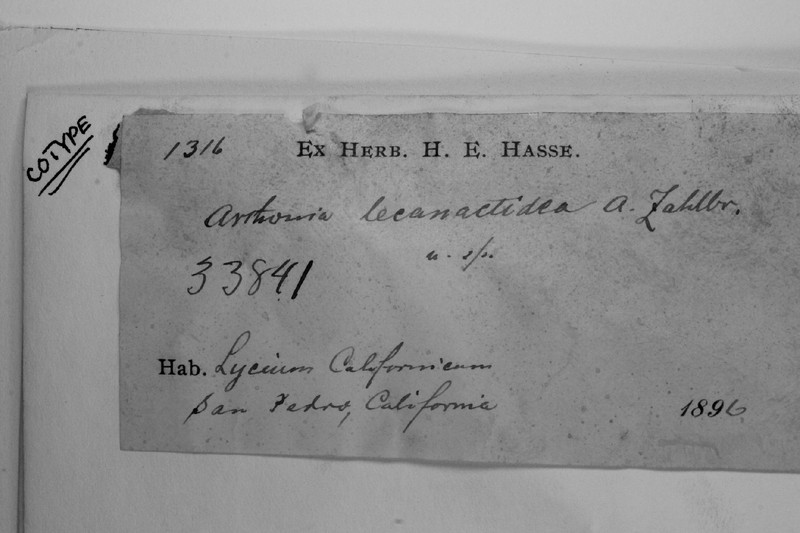 COTYPE
1316 EX HERB. H. E. HASSE.
Arthonia lecanactidea A. Zahlbr.
n. sp.
33841
Hab. Lycium Californicum
San Pedro, California 1896